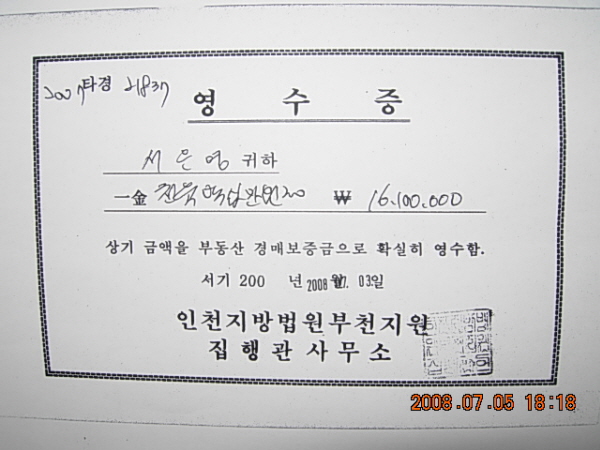 2007타경 21837
영 수 증
서은영 귀하
一金 천육백십만원정 ₩ 16,100,000
상기 금액을 부동산 경매보증금으로 확실히 영수함.
서기 200 년 2008 07. 03일
인천지방법원부천지원
집행관사무소
2008.07.05 18:18